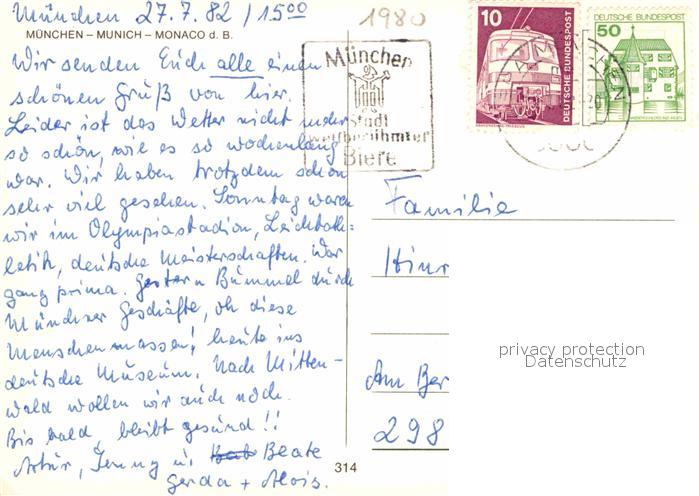 München 27.7.82 / 15⁰⁰
MÜNCHEN – MUNICH – MONACO d. B.
Wir senden Euch alle einen
schönen Gruß von hier.
Leider ist das Wetter nicht mehr
so schön, wie es so wochenlang
war. Wir haben trotzdem schon
sehr viel gesehen. Sonntag waren
wir im Olympiastadion, Leichtath=
letik, deutsche Meisterschaften. War
ganz prima. Gestern Bummel durch
Münchner Geschäfte, oh diese
Menschenmassen! heute ins
deutsche Museum. Nach Mitten-
wald wollen wir auch noch.
Bis bald, bleibt gesund!!
Artur, u. Beate
Gerda + Alois.
1980
München
Stadt
weltberühmter
Biere
10
DEUTSCHE BUNDESPOST
DEUTSCHE BUNDESPOST
50
Familie
Hinr
Am Ber
298
314
privacy protection
Datenschutz